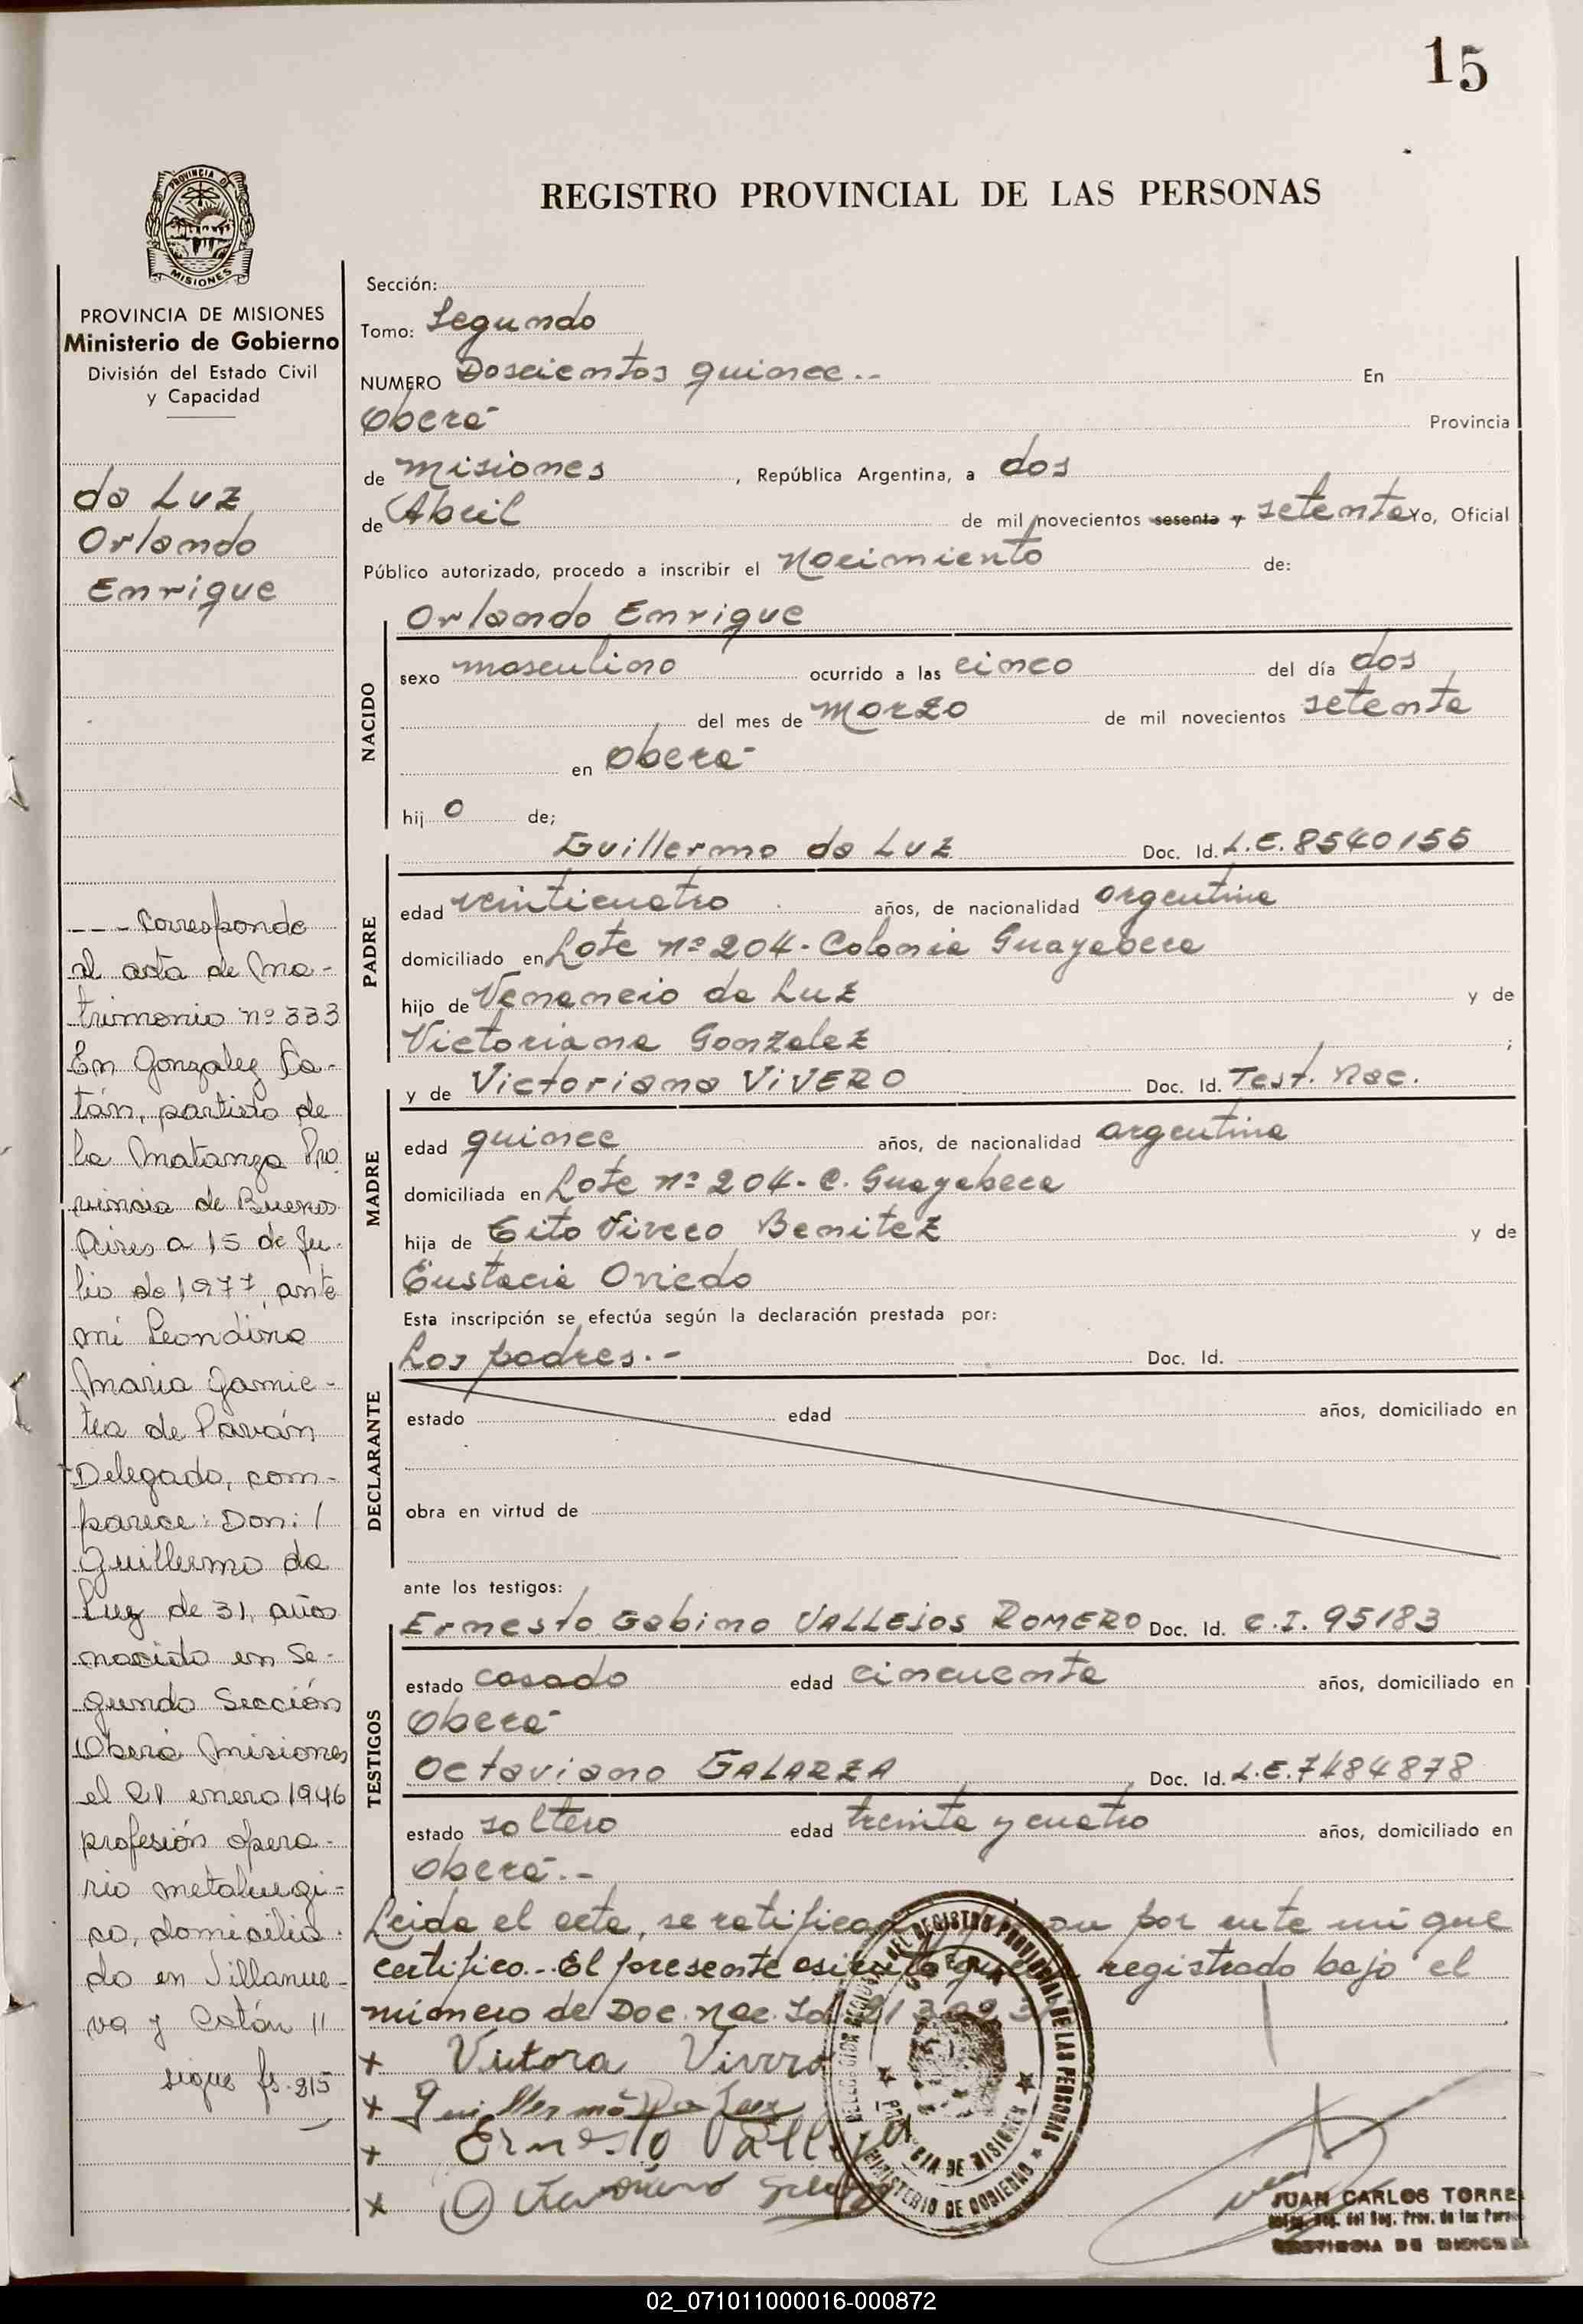 15
REGISTRO PROVINCIAL DE LAS PERSONAS
PROVINCIA DE MISIONES
PROVINCIA DE MISIONES
Ministerio de Gobierno
División del Estado Civil
y Capacidad
da Luz
Orlando
Enrique
--- Corresponde
al acta de Ma-
trimonio nº 333
En Gonzalez Ca-
tán, partido de
la Matanza Pro
vincia de Buenos
Aires a 15 de Ju-
lio de 1977, ante
mi Leondina
Maria Gamie-
tea de Paván
Delegada, com-
parece: Don: /
Guillermo da
Luz de 31, años
nacido en Se-
gundo Sección
Oberá Misiones
el 21 enero 1946
profesión opera-
rio metalurgi-
co, domicilia-
do en Villanue-
va y Catán 11
sigue fs. 215
Sección:
Tomo: Segundo
NUMERO Doscientos quince.-- En
Oberá Provincia
de misiones , República Argentina, a dos
de Abril de mil novecientos sesenta y setenta Yo, Oficial
Público autorizado, procedo a inscribir el Nacimiento de:
NACIDO
Orlando Enrique
sexo masculino ocurrido a las cinco del día dos
del mes de marzo de mil novecientos setenta
en Oberá
hij o de;
PADRE
Guillermo da Luz Doc. Id. L.E. 8540155
edad veinticuatro años, de nacionalidad argentina
domiciliado en Lote nº 204- Colonia Guayabera
hijo de Venancio da Luz y de
Victoriana Gonzalez ;
MADRE
y de Victoriana VIVERO Doc. Id. Test. Nac.
edad quince años, de nacionalidad argentina
domiciliada en Lote nº 204- C. Guayabera
hija de Tito Vivero Benitez y de
Eustacia Oviedo
Esta inscripción se efectúa según la declaración prestada por:
DECLARANTE
Los padres.- Doc. Id.
estado edad años, domiciliado en
obra en virtud de
ante los testigos:
TESTIGOS
Ernesto Gabino VALLEJOS ROMERO Doc. Id. C.I. 95183
estado casado edad cincuenta años, domiciliado en
Oberá
Octaviano GALARZA Doc. Id. L.E. 7484878
estado soltero edad treinta y cuatro años, domiciliado en
Oberá.--
Leida el acta, se ratifican por ante mi que
certifico.- El presente registrado bajo el
número de Doc. Nac. Id.
+ Victora Vivero
+ Guillermo Da Luz
+ Ernesto Vallejos
x Octaviano
DEL REGISTRO PROVINCIAL DE LAS PERSONAS
MINISTERIO DE GOBIERNO
PROVINCIA DE MISIONES
JUAN CARLOS TORRE
del Reg. Prov. de las Pers
PROVINCIA DE MISIONES
02_071011000016-000872